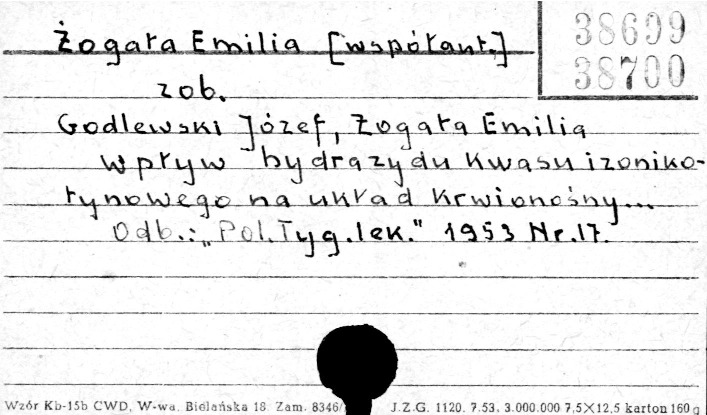 Żogała Emilia [współaut.]
38699
38700
zob.
Godlewski Józef, Żogała Emilia
Wpływ hydrazydu kwasu izoniko-
tynowego na układ krwionośny...
Odb.: „Pol.Tyg.lek." 1953 Nr.17.
Wzór Kb-15b CWD, W-wa, Bielańska 18 Zam. 8346/ J.Z.G. 1120. 7.53. 3.000.000 7,5×12,5 karton 160 g